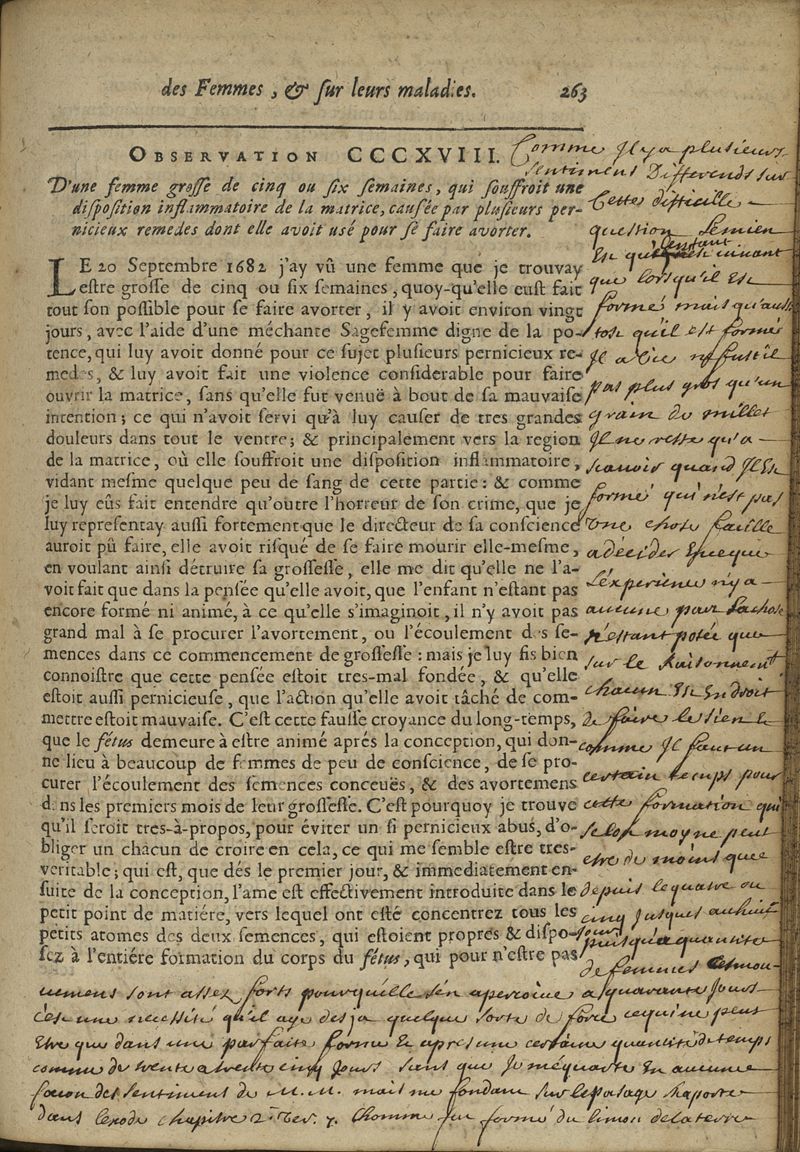 des Femmes, & ſur leurs maladies. 263
OBSERVATION CCCXVIII.
D'une femme groſſe de cinq ou ſix ſemaines, qui ſouffroit une
diſpoſition inflammatoire de la matrice, cauſée par pluſieurs per-
nicieux remedes dont elle avoit uſé pour ſe faire avorter.
LE 20 Septembre 1682 j'ay vû une femme que je trouvay
eſtre groſſe de cinq ou ſix ſemaines, quoy-qu'elle euſt fait
tout ſon poſſible pour ſe faire avorter, il y avoit environ vingt
jours, avec l'aide d'une méchante Sagefemme digne de la po-
tence, qui luy avoit donné pour ce ſujet pluſieurs pernicieux re-
medes, & luy avoit fait une violence conſiderable pour faire
ouvrir la matrice, ſans qu'elle fut venuë à bout de ſa mauvaiſe
intention; ce qui n'avoit ſervi qu'à luy cauſer de tres grandes
douleurs dans tout le ventre; & principalement vers la region
de la matrice, où elle ſouffroit une diſpoſition inflammatoire,
vidant meſme quelque peu de ſang de cette partie: & comme
je luy eûs fait entendre qu'outre l'horreur de ſon crime, que je
luy repreſentay auſſi fortement que le directeur de ſa conſcience
auroit pû faire, elle avoit riſqué de ſe faire mourir elle-meſme,
en voulant ainſi détruire ſa groſſeſſe, elle me dit qu'elle ne l'a-
voit fait que dans la penſée qu'elle avoit, que l'enfant n'eſtant pas
encore formé ni animé, à ce qu'elle s'imaginoit, il n'y avoit pas
grand mal à ſe procurer l'avortement, ou l'écoulement des ſe-
mences dans ce commencement de groſſeſſe: mais je luy fis bien
connoiſtre que cette penſée eſtoit tres-mal fondée, & qu'elle
eſtoit auſſi pernicieuſe, que l'action qu'elle avoit tâché de com-
mettre eſtoit mauvaiſe. C'eſt cette fauſſe croyance du long-temps,
que le fétus demeure à eſtre animé aprés la conception, qui don-
ne lieu à beaucoup de femmes de peu de conſcience, de ſe pro-
curer l'écoulement des ſemences conceuës, & des avortemens
dans les premiers mois de leur groſſeſſe. C'eſt pourquoy je trouve
qu'il ſeroit tres-à-propos, pour éviter un ſi pernicieux abus, d'o-
bliger un chacun de croire en cela, ce qui me ſemble eſtre tres-
veritable; qui eſt, que dés le premier jour, & immediatement en-
ſuite de la conception, l'ame eſt effectivement introduite dans le
petit point de matiére, vers lequel ont eſté concentrez tous les
petits atomes des deux ſemences, qui eſtoient propres & diſpo-
ſez à l'entiére formation du corps du fétus, qui pour n'eſtre pas
Comme Il y a plusieurs
sentiments Differends sur
Cette difficille
question Le mien
Est que l'enfant vivant
que lorsqu'il Est
formé mais qu'aussi
tost qu'il est formé
Il a vie ne fust il
pas plus gros qu'un
grain de millet
Il ne reste qu'a
scavoir quand Il Est
formé qui n'est pas
Une chose facille
a decider puisque
L'experience n'y a
aucune part La chose
N'estant posée que
sur le Raisonnement
chacun Est En droit
de faire le sien Et
comme Il faut un
certain temps pour
cette formation qui
selon moy ne peut
estre de moins que
depuis le quatre ou
cinq Jusques au huit
puisqu'a quantité
de femmes les mou-
vemens sont assez forts pour qu'elle s'en apercoive a quarante Jours
c'est une necessité qu'il aye desja quelque sorte de force ce qui ne peut
Etre que dans une parfaite forme Et apres une certaine quantité de temps
comme de trente a trente cinq Jours sans que Je m'equarte En aucune
facon des sentiment de M.M. mais me fondant sur le pasage Raporté
dans lexode chapitre 2. Ver. 7. Lhomme fut formé du limon de la terre